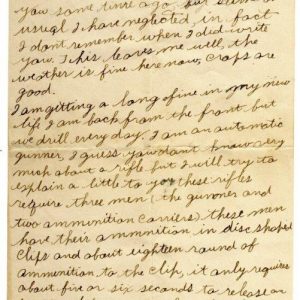 You some time ago. but seems as
usual I have neglected, in fact
I dont remember when I did write
you. This leaves me well, the
weather is fine here now, craps are
good.
I am gitting a long fine in my new
life I am back from the front. but
we drill every day. I am an automatic
gunner, I guess you dont know very
much about a rifle but I will try to
explain a little to you these rifles
require three men (the gunner and
two ammunition carriers). these men
have their ammntion in disc shaped
clips and about eighteen round of
ammunition to the clip, it only requires
about five or six seconds to release an